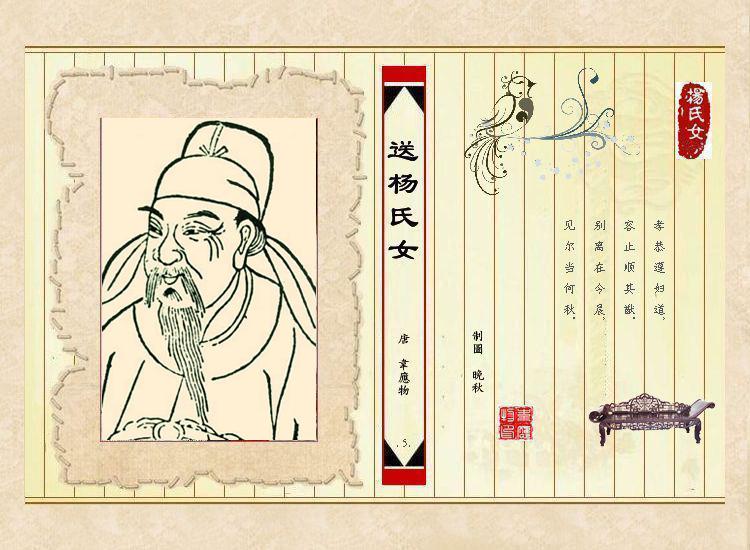 送杨氏女
唐 韋應物
.5.
楊氏女
孝恭遵妇道，
容止顺其猷。
别离在今晨，
见尔当何秋。
制圖 晚秋